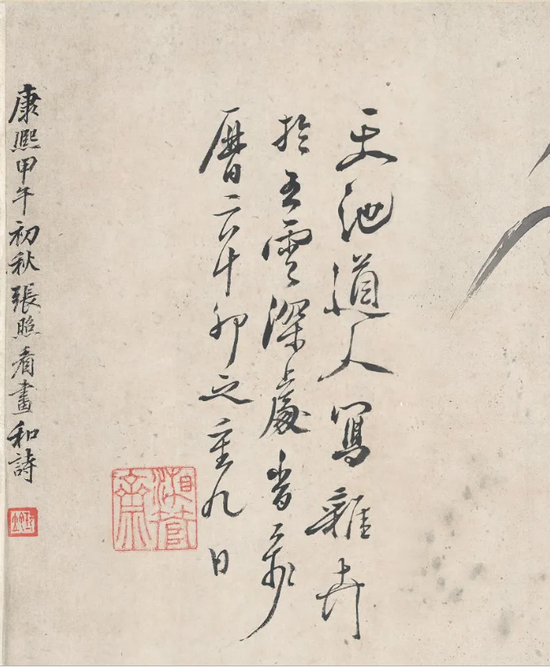 天池道人寫雜卉
於五雲深處旹萬
曆辛卯之重九日
湘管齋
康熙甲午初秋張照看畫和詩